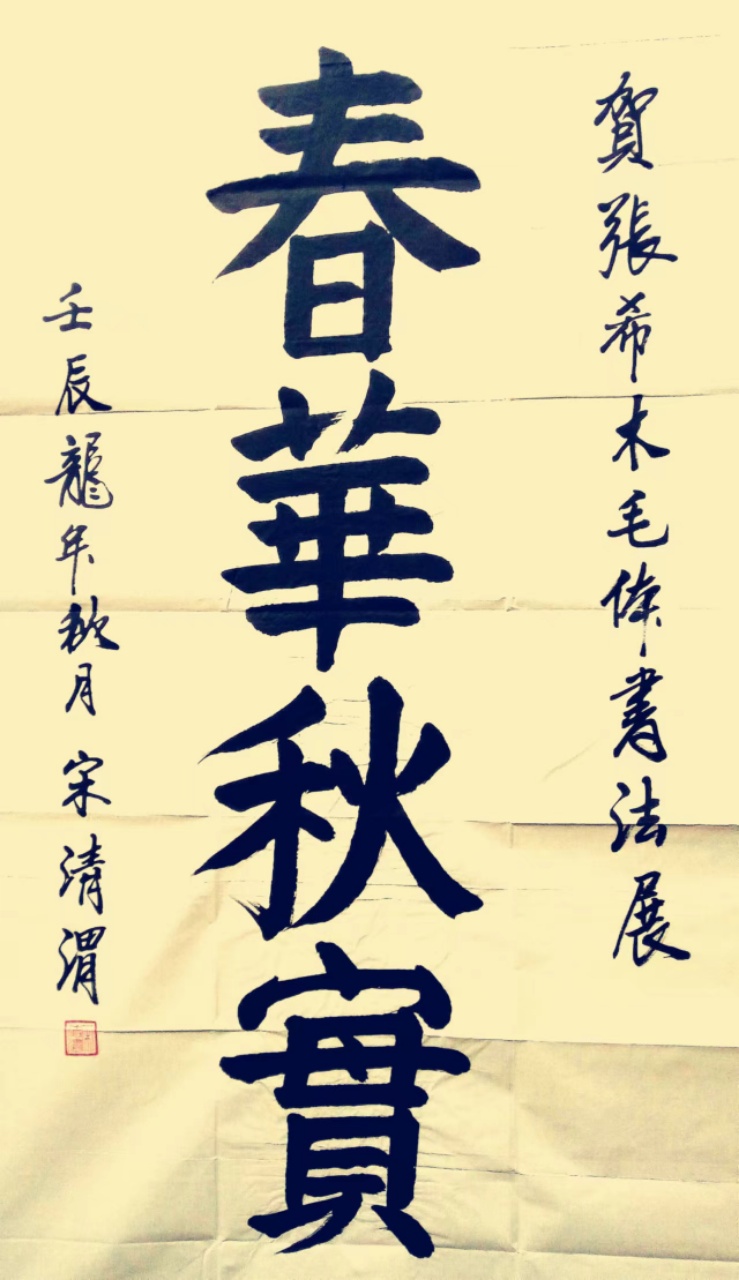 賀張希木毛体書法展
春華秋實
壬辰龍年秋月 宋清渭